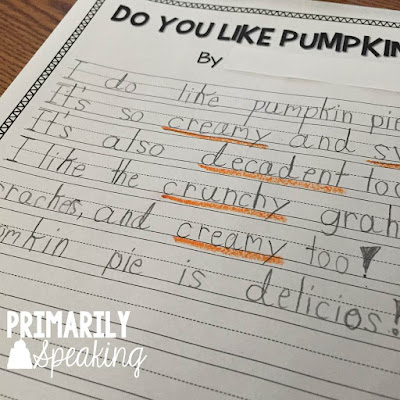 DO YOU LIKE PUMPKIN
By
I do like pumpkin pie
It's so creamy and
It's also decadent too
I like the crunchy grah
craches, and creamy too!
pie is delicios!
PRIMARILY
Speaking